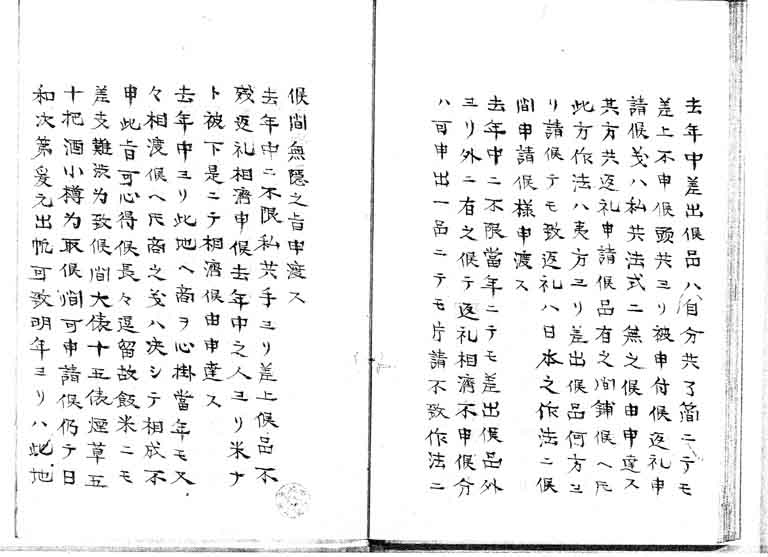 去年中差出候品ハ自分共了簡ニテモ
差上不申候頭共ヨリ被申付候返礼申
請候義ハ私共法式ニ無之候由申達ス
其方共返礼申請候品有之間鋪候ヘ𪜈
此方作法ハ夷方ヨリ差出候品何方ヨ
リ請候テモ致返礼ハ日本之作法ニ候
間申請候様申渡ス
去年中ニ不限當年ニテモ差出候品外
ヨリ外ニ有之候テ返礼相濟不申候分
ハ可申出一品ニテモ片請不致作法ニ
候間無隠之旨申渡ス
去年中ニ不限私共手ヨリ差上候品不
残返礼相濟申候去年中之人ヨリ米ナ
ト被下是ニテ相濟候由申達ス
去年中ヨリ此地ヘ商ヲ心掛當年モ又
々相渡候ヘ𪜈商之義ハ决シテ相成不
申此旨可心得候長々逗留故飯米ニモ
差支難渋為致候間大俵十五俵煙草五
十把酒小樽為取候間可申請候仍テ日
和次第爰元出帆可致明年ヨリハ此地